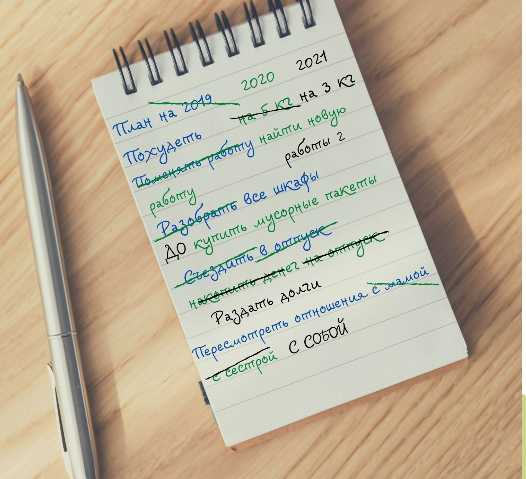 2020 2021
План на 2019
Похудеть на 5 кг на 3 кг
Поменять работу найти новую
работу работы 2
Разобрать все шкафы
ДО купить мусорные пакеты
Съездить в отпуск
накопить денег на отпуск
Раздать долги
Пересмотреть отношения с мамой
с сестрой С СОБОЙ